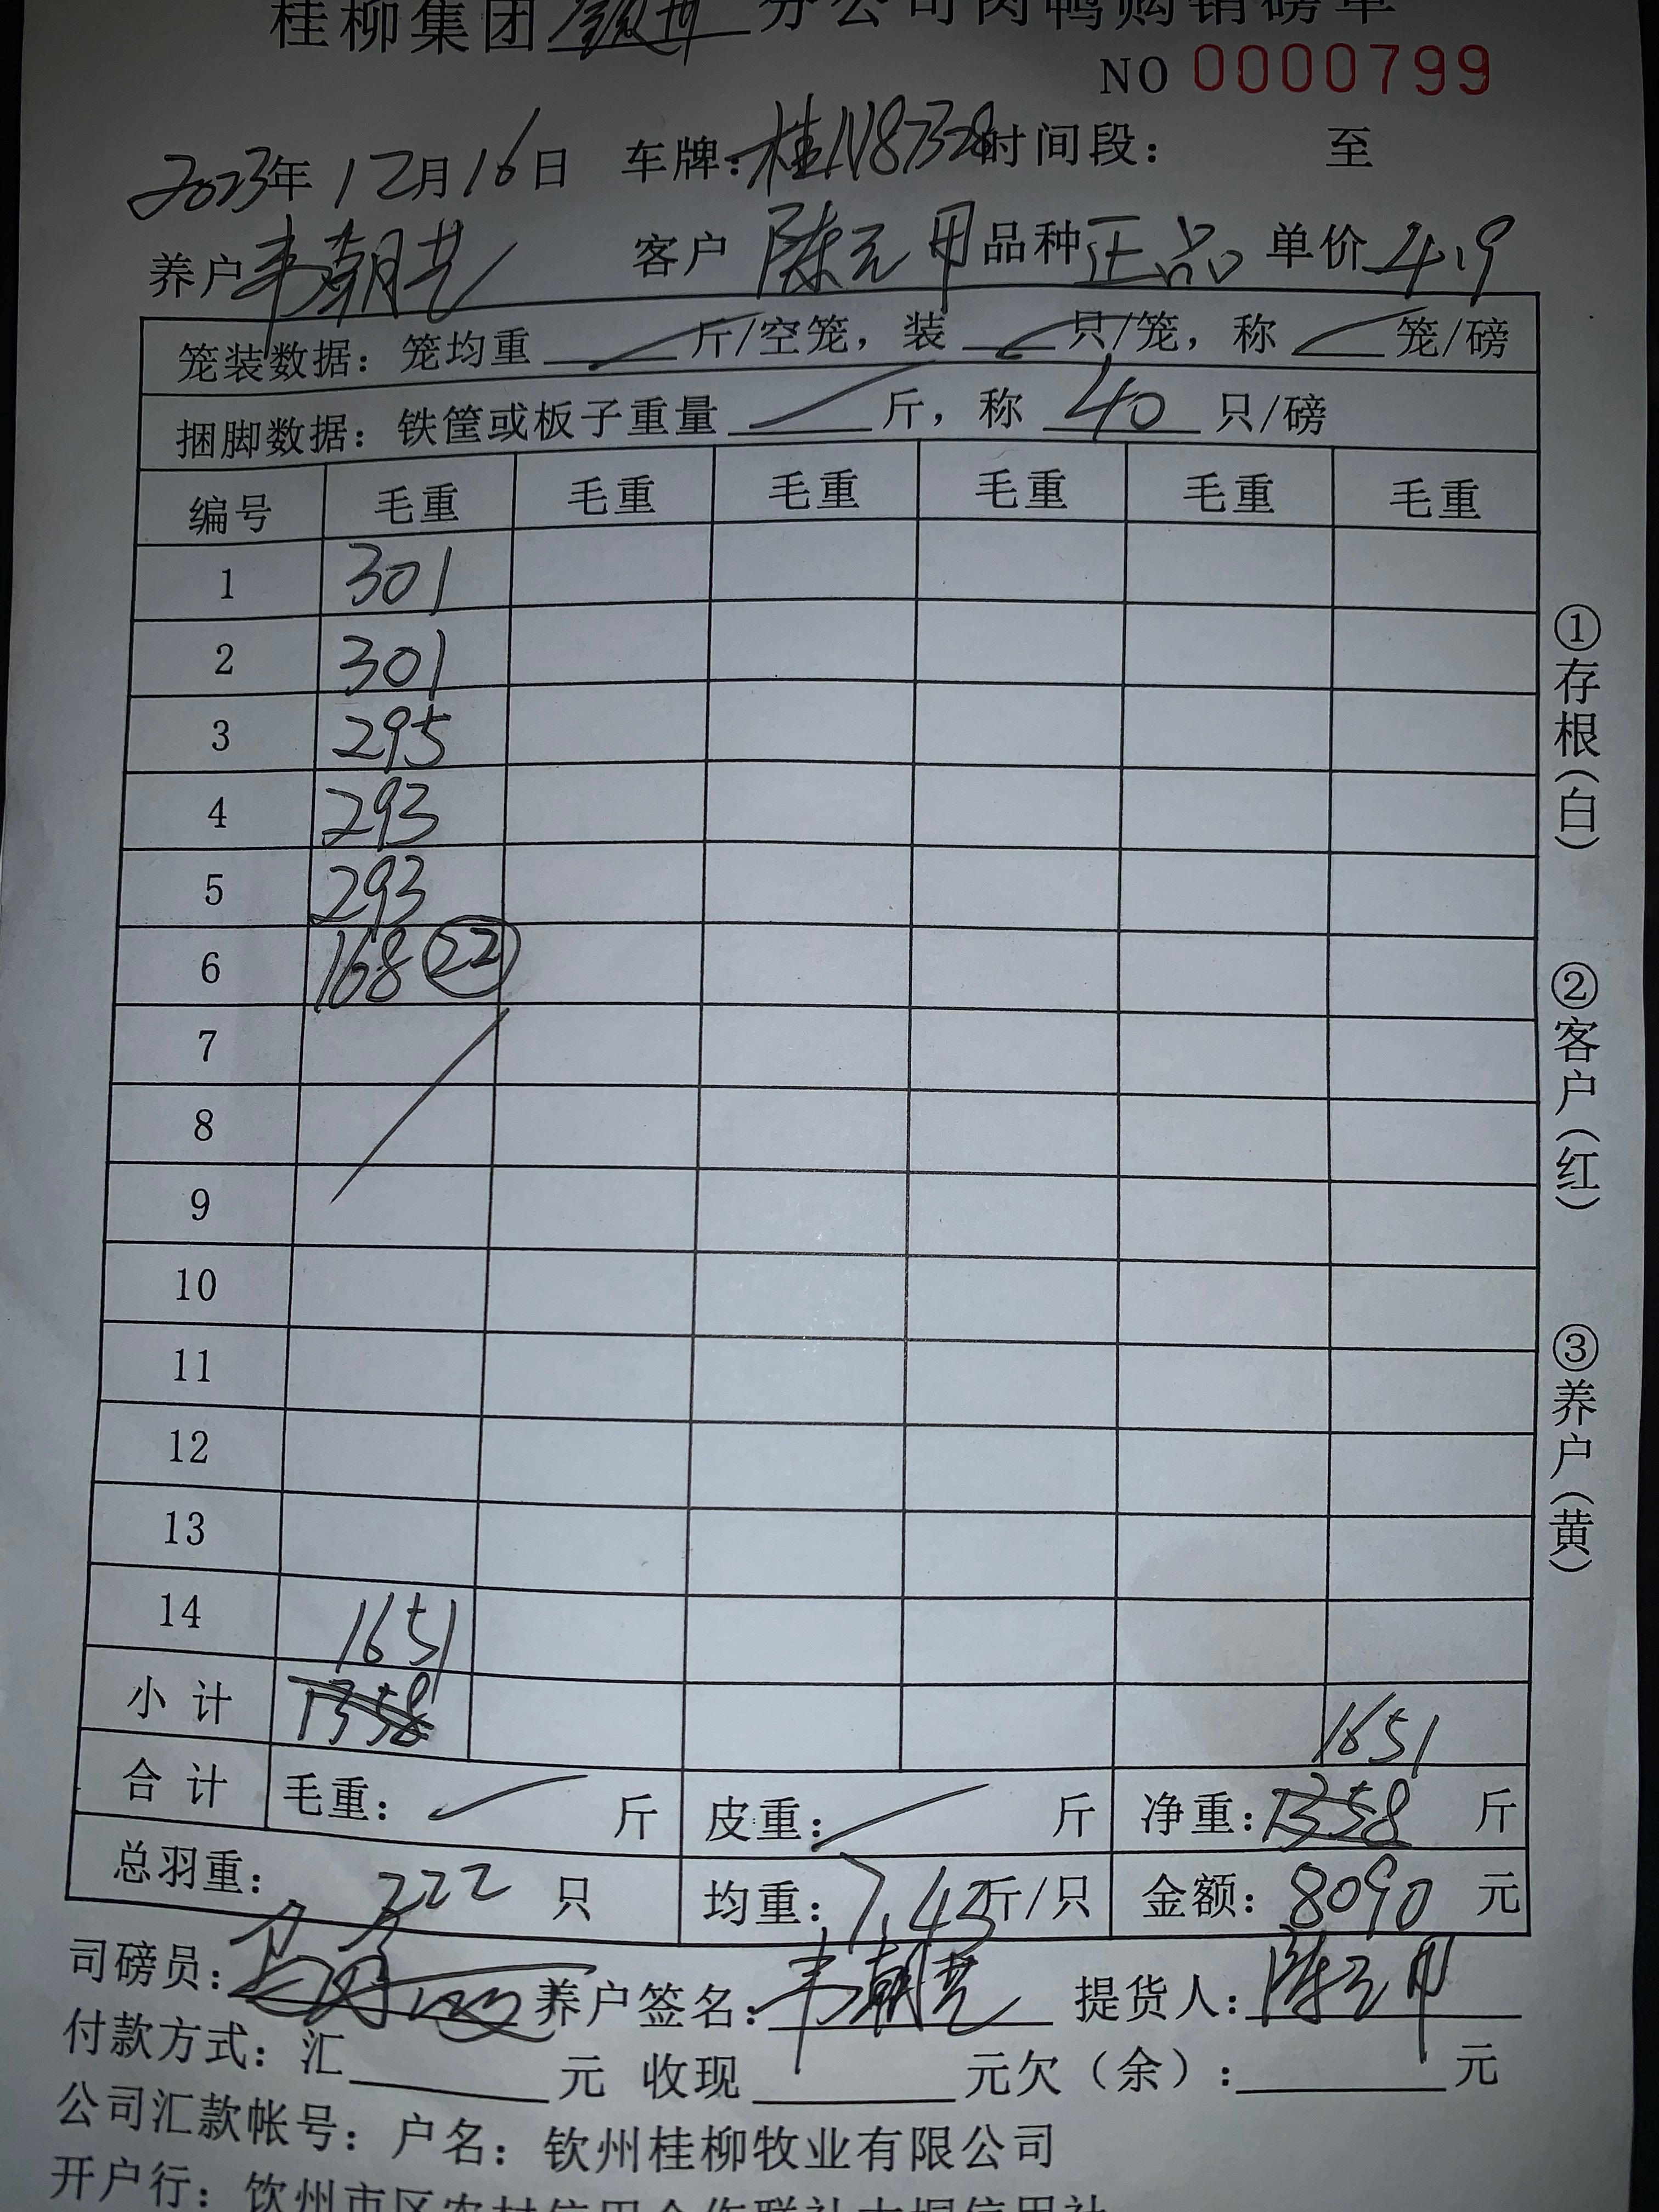 桂柳集团 钦州 分公司肉鸭购销磅单
NO 0000799
2023年 12月 16日 车牌:桂N87328 时间段: 至
养户 韦朝 客户 陈元甲 品种 正品 单价 4.9
笼装数据: 笼均重 斤/空笼, 装 只/笼, 称 笼/磅
捆脚数据: 铁筐或板子重量 斤, 称 40 只/磅
编号 毛重 毛重 毛重 毛重 毛重 毛重
1 301
2 301
3 295
4 293
5 293
6 168 22
7
8
9
10
11
12
13
14 1651
小计 1358 1651
合计 毛重: 斤 皮重: 斤 净重: 1358 斤
总羽重: 222 只 均重: 7.43 斤/只 金额: 8090 元
司磅员: 养户签名: 韦朝 提货人: 陈元甲
付款方式: 汇 元 收现 元欠(余): 元
公司汇款帐号: 户名: 钦州桂柳牧业有限公司
开户行: 钦州市区农村信用合作联社大垌信用社
①存根(白)
②客户(红)
③养户(黄)